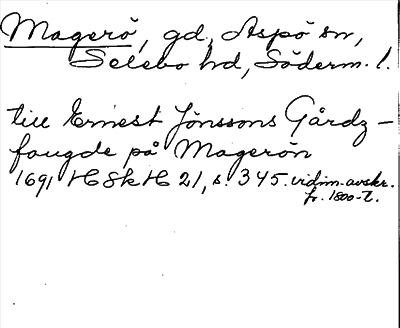 Magerö, gd, Aspö sn,
Selebo hd, Söderm. l.
till Ernest Jönssons Gårdz-
faugde på Magerön
1691 HSkH 21, s. 345. vidim. avskr.
fr. 1800-t.